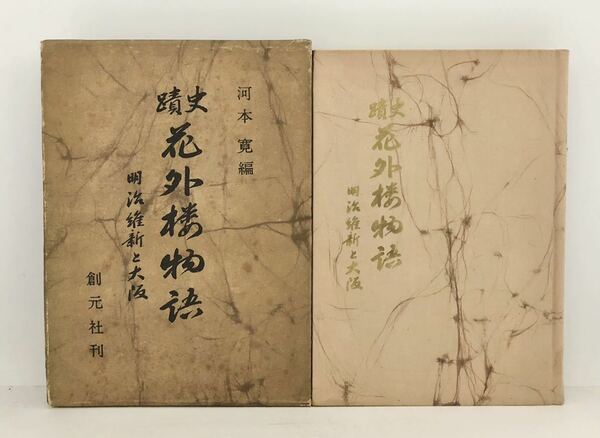 河本寛編
史蹟
花外楼物語
明治維新と大阪
創元社刊
史蹟
花外楼物語
明治維新と大阪